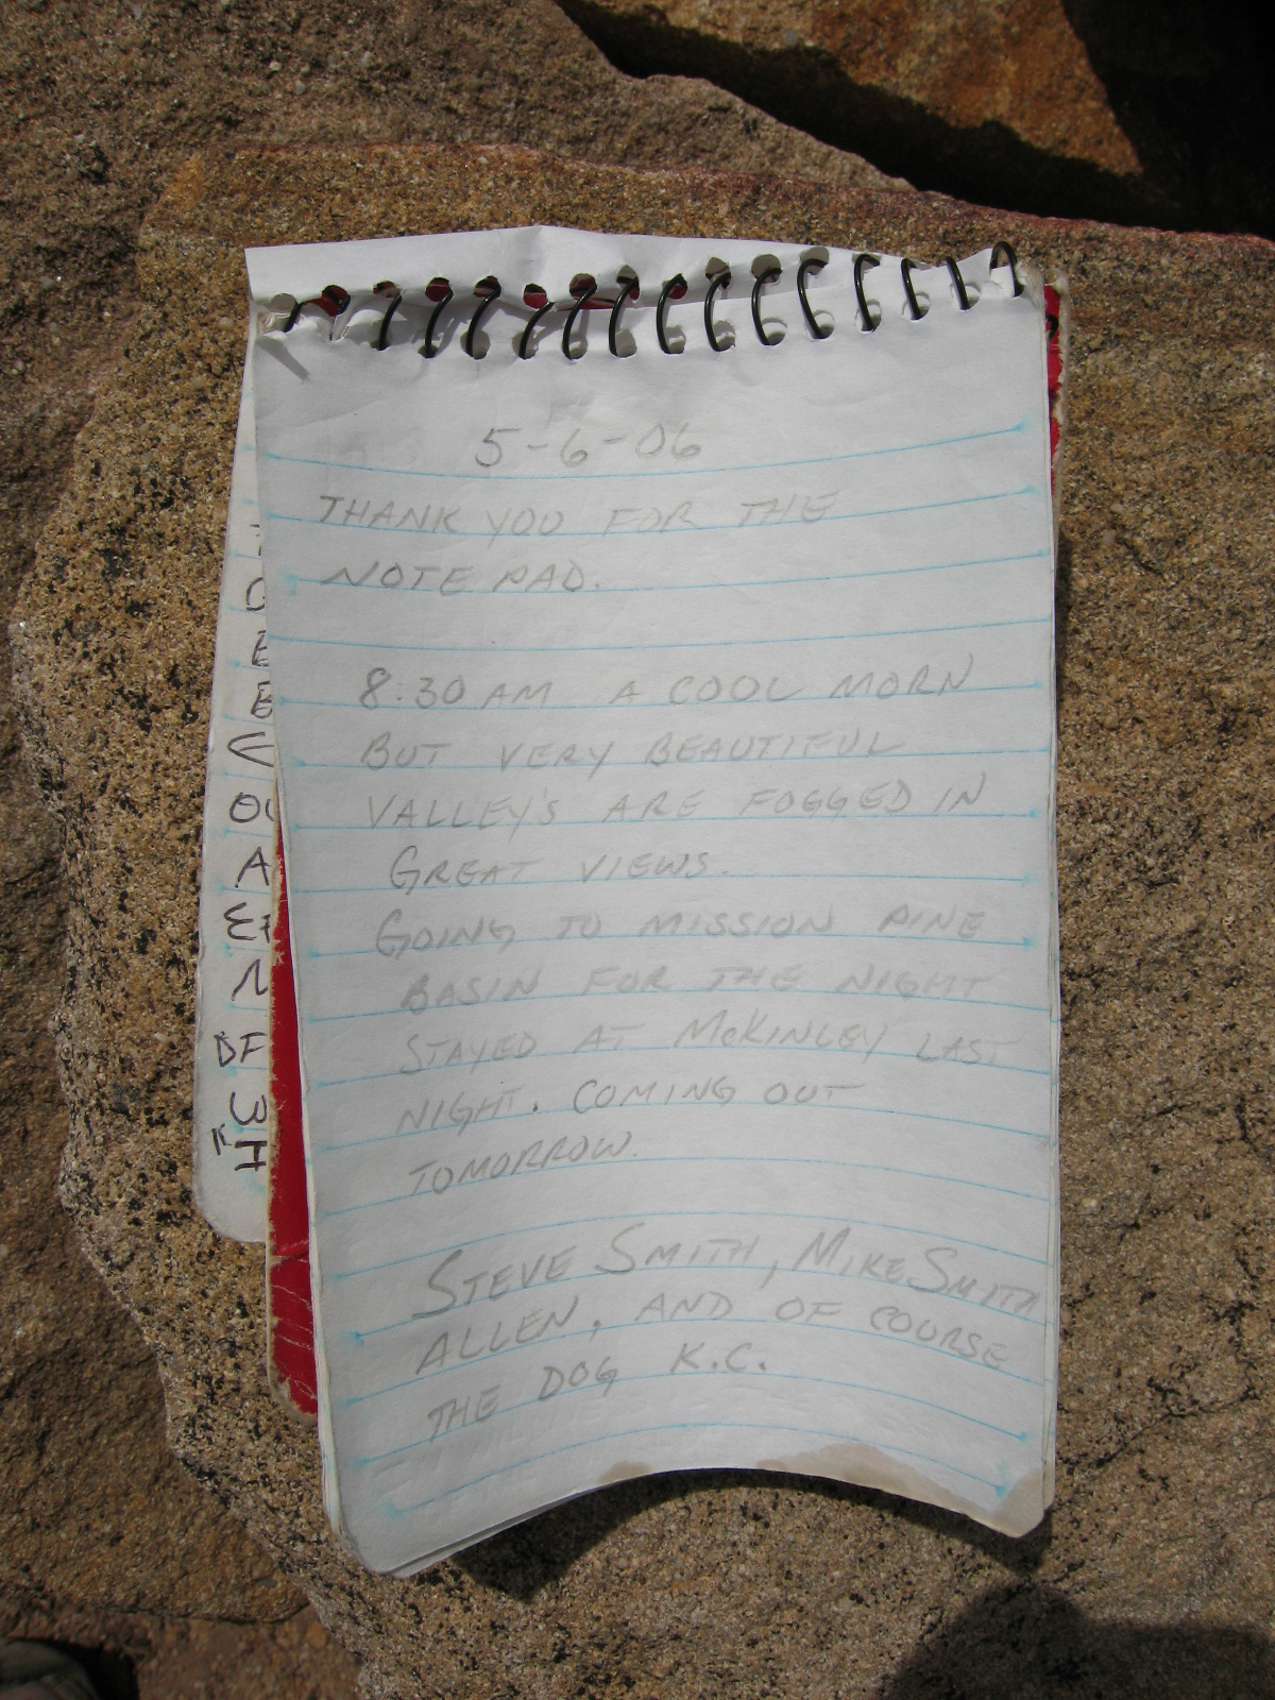 5-6-06
THANK YOU FOR THE
NOTE PAD.
8:30 AM A COOL MORN
BUT VERY BEAUTIFUL
VALLEY'S ARE FOGGED IN
GREAT VIEWS.
GOING TO MISSION PINE
BASIN FOR THE NIGHT
STAYED AT McKINLEY LAST
NIGHT. COMING OUT
TOMORROW.
STEVE SMITH, MIKE SMITH
ALLEN, AND OF COURSE
THE DOG K.C.